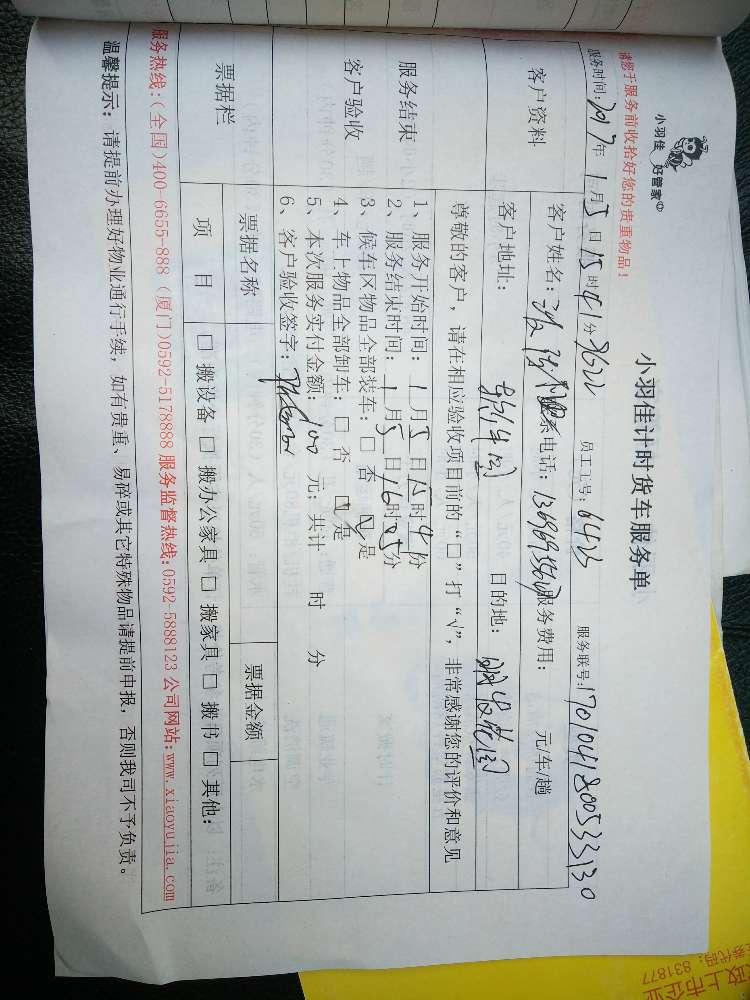 小羽佳 好管家
小羽佳计时货车服务单
请您于服务前收拾好您的贵重物品！
服务时间：2017年 1月5日15时41分 员工工号：6423 服务联号：1701041800533130
客户资料
客户姓名： 联系电话： 服务费用： 元/车/趟
客户地址： 目的地：明发花园
尊敬的客户，请在相应验收项目前的“□”打“√”，非常感谢您的评价和意见
服务结束
客户验收
1、服务开始时间：1月5日15时41分
2、服务结束时间：1月5日16时05分
3、候车区物品全部装车：□ 否 ☑ 是
4、车上物品全部卸车：□ 否 ☑ 是
5、本次服务实付金额：100 元；共计 时 分
6、客户验收签字：
票据栏
票据名称 票据金额
项 目 □ 搬设备 □ 搬办公家具 □ 搬家具 □ 搬书 □ 其他：
服务热线：(全国)400-6655-888 (厦门)0592-5178888 服务监督热线：0592-5888123 公司网站：www.xiaoyujia.com
温馨提示：请提前办理好物业通行手续，如有贵重、易碎或其它特殊物品请提前申报，否则我司不予负责。
上市企业
代码：831877